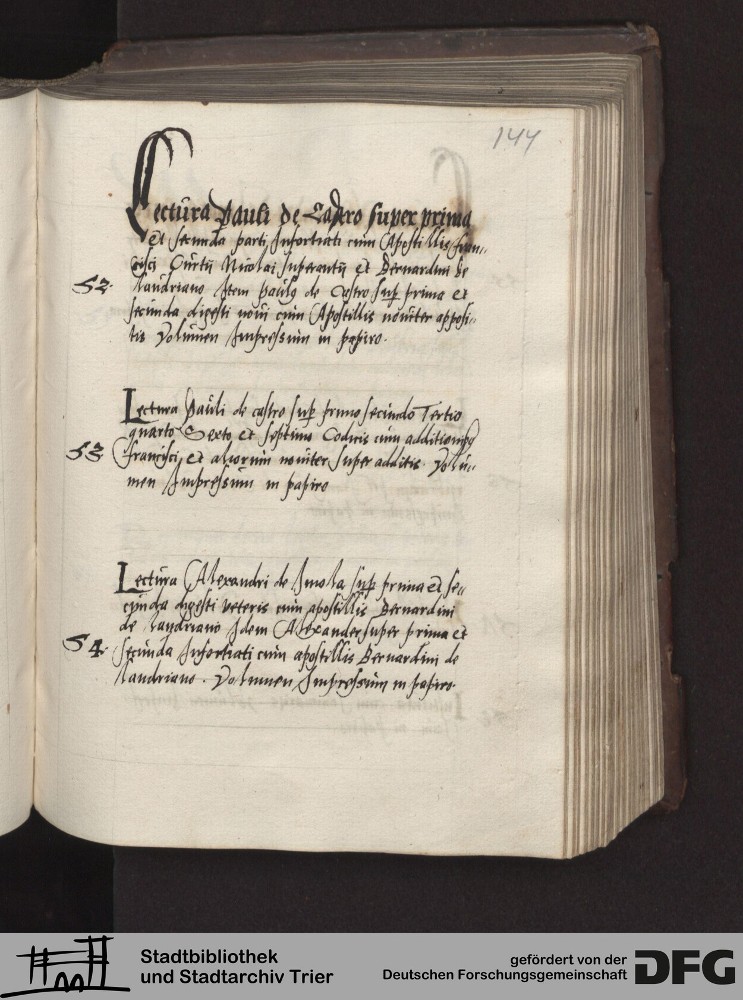 144
Lectura Pauli de Castro super prima
et secunda parti Infortiati cum Apostillis fran„
cisci Curtii Nicolai Superantii et Bernardini de
52. landriano Item paulus de Castro sup prima et
secunda digesti noui cum Apostillis nouiter apposi„
tis Volumen Impressum in papiro.
Lectura Pauli de castro sup primo secundo Tertio
quarto Sexto et septimo Codicis cum
53. francisci et aliorum nouiter super additis. Volu„
men Impressum in papiro
Lectura Alexandri de Imola sup prima et se„
cunda digesti veteris cum apostillis Bernardini
de landriano Idem Alexander super prima et
54. secunda Infortiati cum apostillis Bernardini de
landriano. Volumen Impressum in papiro.
Stadtbibliothek
und Stadtarchiv Trier
gefördert von der
Deutschen Forschungsgemeinschaft
DFG